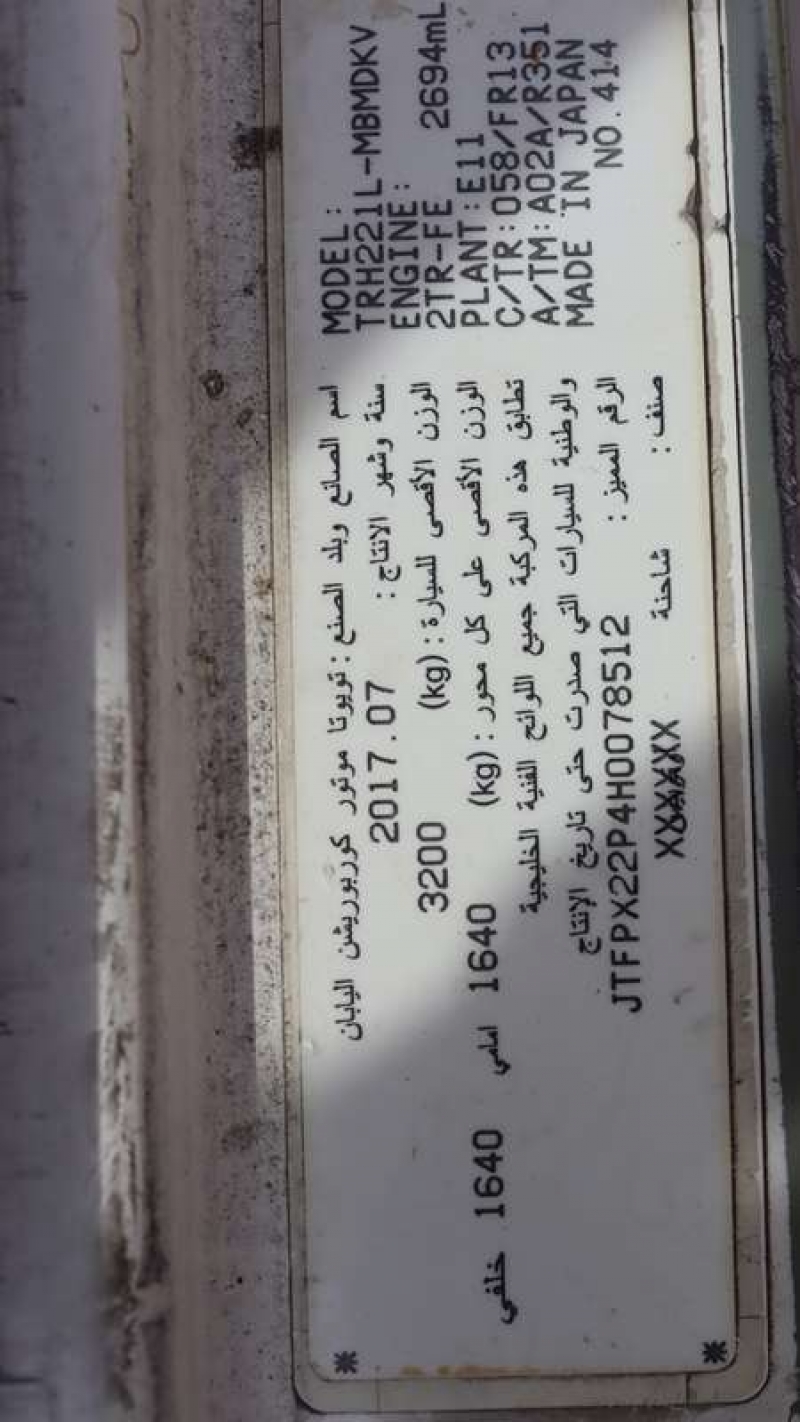 MODEL:
TRH221L-MBMDKV
ENGINE:
2TR-FE 2694mL
PLANT:E11
C/TR:058/FR13
A/TM:A02A/R351
MADE IN JAPAN
NO.414
اسم الصانع وبلد الصنع : تويوتا موتور كوربوريشن اليابان
سنة وشهر الانتاج : 2017.07
الوزن الأقصى للسيارة : (kg) 3200
الوزن الأقصى على كل محور : (kg) 1640 امامي 1640 خلفي
تطابق هذه المركبة جميع اللوائح الفنية الخليجية
والوطنية للسيارات التي صدرت حتى تاريخ الإنتاج
الرقم المميز : JTFPX22P4H0078512
صنف : شاحنة XXXXXX